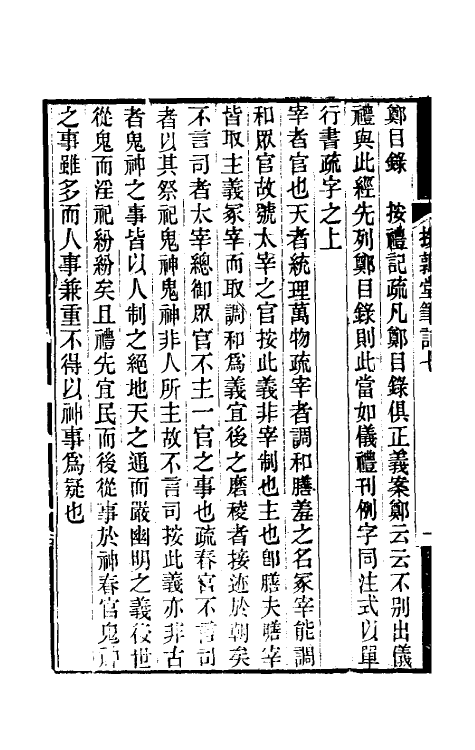 援鶉堂筆記七
鄭目錄　按禮記疏凡鄭目錄俱正義案鄭云云不別出儀
禮與此經先列鄭目錄則此當如儀禮刊例字同注式以單
行書疏字之上
宰者官也天者統理萬物疏宰者調和膳羞之名冢宰能調
和眾官故號太宰之官按此義非宰制也主也卽膳夫膳宰
皆取主義冢宰而取調和爲義宜後之磨稜者接迹於朝矣
不言司者太宰總御眾官不主一官之事也疏春官不言司
者以其祭祀鬼神鬼神非人所主故不言司按此義亦非古
者鬼神之事皆以人制之絕地天之通而嚴幽明之義後世
從鬼而淫祀紛紛矣且禮先宜民而後從事於神春官鬼神
之事雖多而人事兼重不得以神事爲疑也